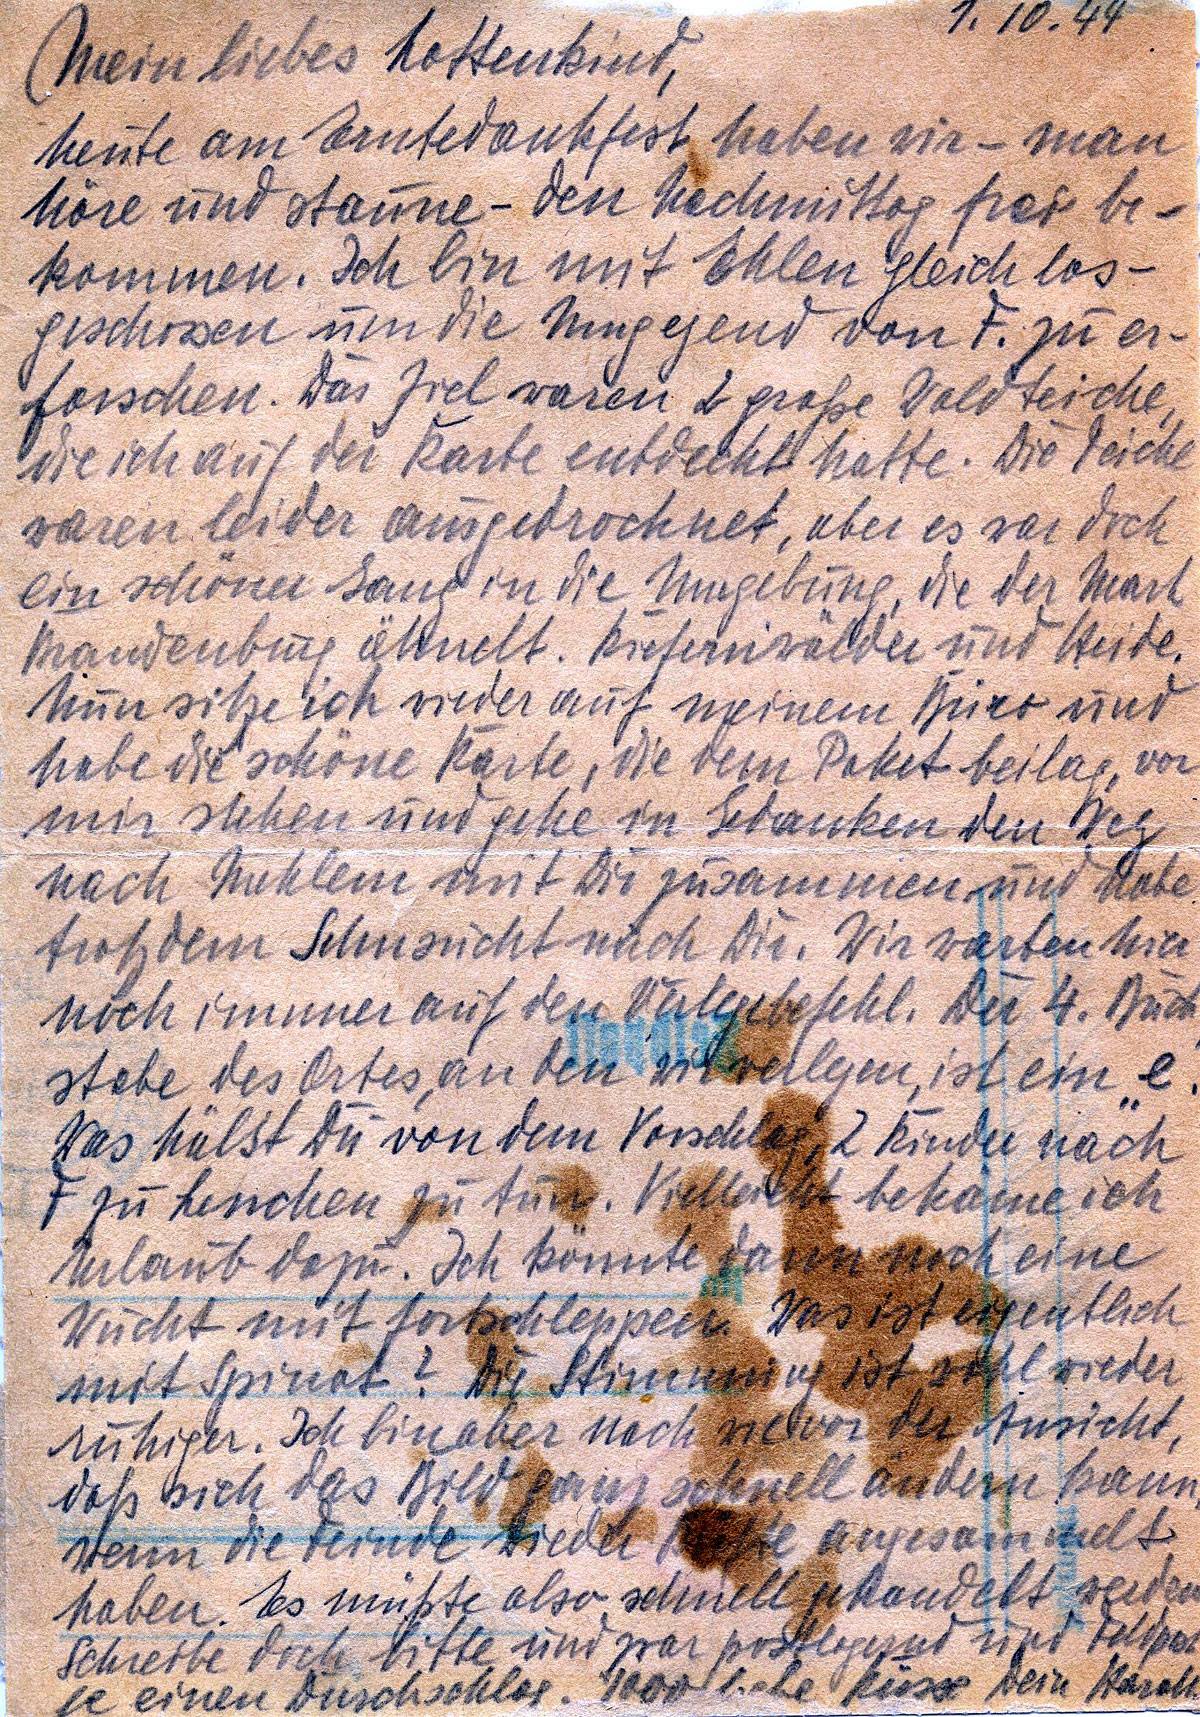 1.10.44
Mein liebes Lottenkind,
heute am Erntedankfest haben wir – man
höre und staune – den Nachmittag frei be-
kommen. Ich bin mit Ehlen gleich los-
geschossen um die Umgegend von F. zu er-
forschen. Das Ziel waren 2 große Waldteiche,
die ich auf der Karte entdeckt hatte. Die Teiche
waren leider ausgetrocknet, aber es war doch
ein schöner Gang in die Umgebung, die der Mark
Brandenburg ähnelt. Kiefernwälder und Heide.
Nun sitze ich wieder auf meinem Büro und
habe die schöne Karte, die dem Paket beilag, vor
mir stehen und gehe in Gedanken den Weg
nach Mehlem mit Dir zusammen und habe
trotzdem Sehnsucht nach Dir. Wir warten hier
noch immer auf den Verlegbefehl. Der 4. Buch-
stabe des Ortes, an den wir verlegen, ist ein „e".
Was hälst Du von dem Vorschlag, 2 Kinder nach
F zu zu tun. Vielleicht bekäme ich
Urlaub dazu. Ich könnte dann noch eine
Wucht mit fortschleppen. Was ist eigentlich
mit Spinat? Die Stimmung ist wohl wieder
ruhiger. Ich bin aber nach wie vor der Ansicht,
daß sich das Bild ganz schnell ändern kann
wenn die Feinde wieder Kräfte angesammelt
haben. Es müßte also schnell gehandelt werden
Schreibe doch bitte und zwar postlagernd und Feldpost
je einen Durchschlag. 1000 liebe Küsse Dein